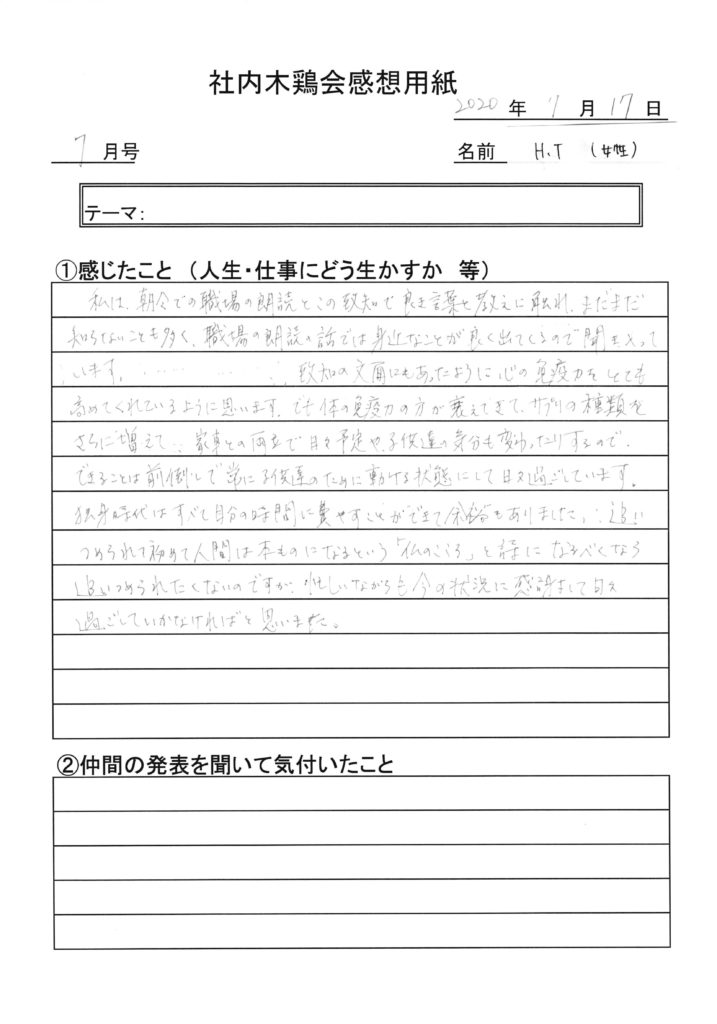 社内木鶏会感想用紙
2020 年 7 月 17 日
7 月号
名前 H.T (女性)
テーマ:
①感じたこと (人生・仕事にどう生かすか 等)
私は、朝令での職場の朗読とこの致知で良き言葉と教えに触れ、まだまだ
知らないことも多く、職場の朗読の話では身近なことが良く出てくるので聞き入って
います。 致知の文面にもあったように心の免疫力をとても
高めてくれているように思います。でも体の免疫力の方が衰えてきて、サプリの種類を
さらに増えて 家事との両立で日々予定や、子供達の気分も変わったりするので、
できることは前倒しで常に子供達のために動ける状態にして日々過ごしています。
独身時代はすべて自分の時間に費やすことができて余裕もありました。追い
つめられて初めて人間は本ものになるという「仏のこころ」と詩に なるべくなら
追いつめられたくないのですが、忙しいながらも今の状況に感謝をして日々
過ごしていかなければと思いました。
②仲間の発表を聞いて気付いたこと